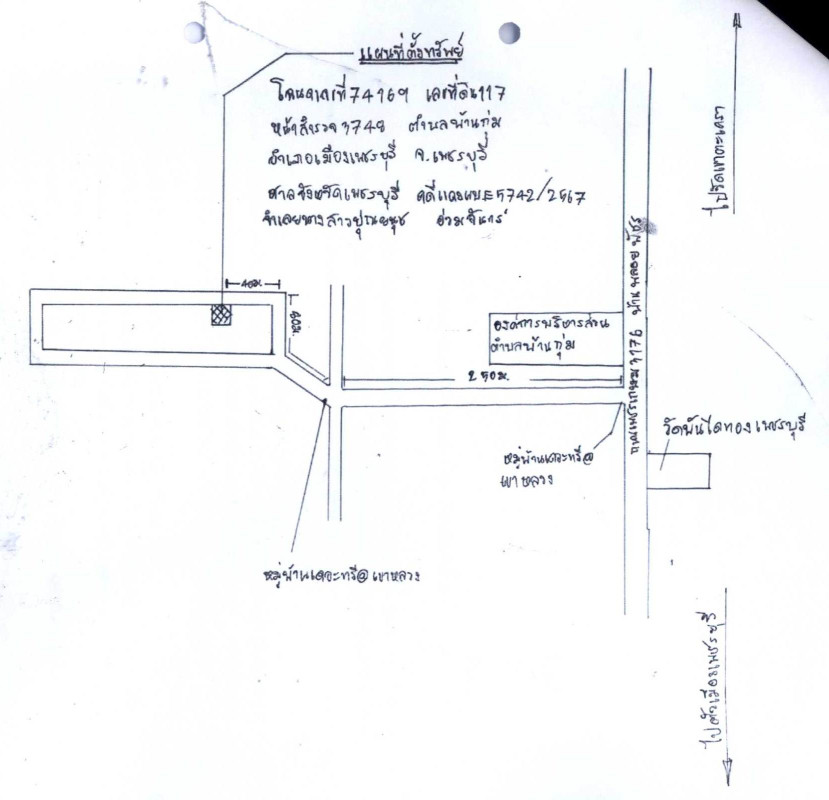 แผนที่ตั้งทรัพย์
โฉนดเลขที่ 74169 เลขที่ดิน 117
หน้าสำรวจ 3748 ตำบลบ้านกุ่ม
อำเภอเมืองเพชรบุรี จ.เพชรบุรี
ศาลจังหวัดเพชรบุรี คดีแดง ผบE5742/2567
จำเลยนางสาวปุณยนุช อ่วมจันทร์
ไปวัดเขาตะเครา
40ม.
60ม.
องค์การบริหารส่วน
ตำบลบ้านกุ่ม
250ม.
ถนนเพชรเกษม 3176 บ้านพลอยพัชร
วัดพันไดทอง เพชรบุรี
หมู่บ้านเดอะทรี@
เขาหลวง
หมู่บ้านเดอะทรี@เขาหลวง
ไปตัวเมืองเพชรบุรี